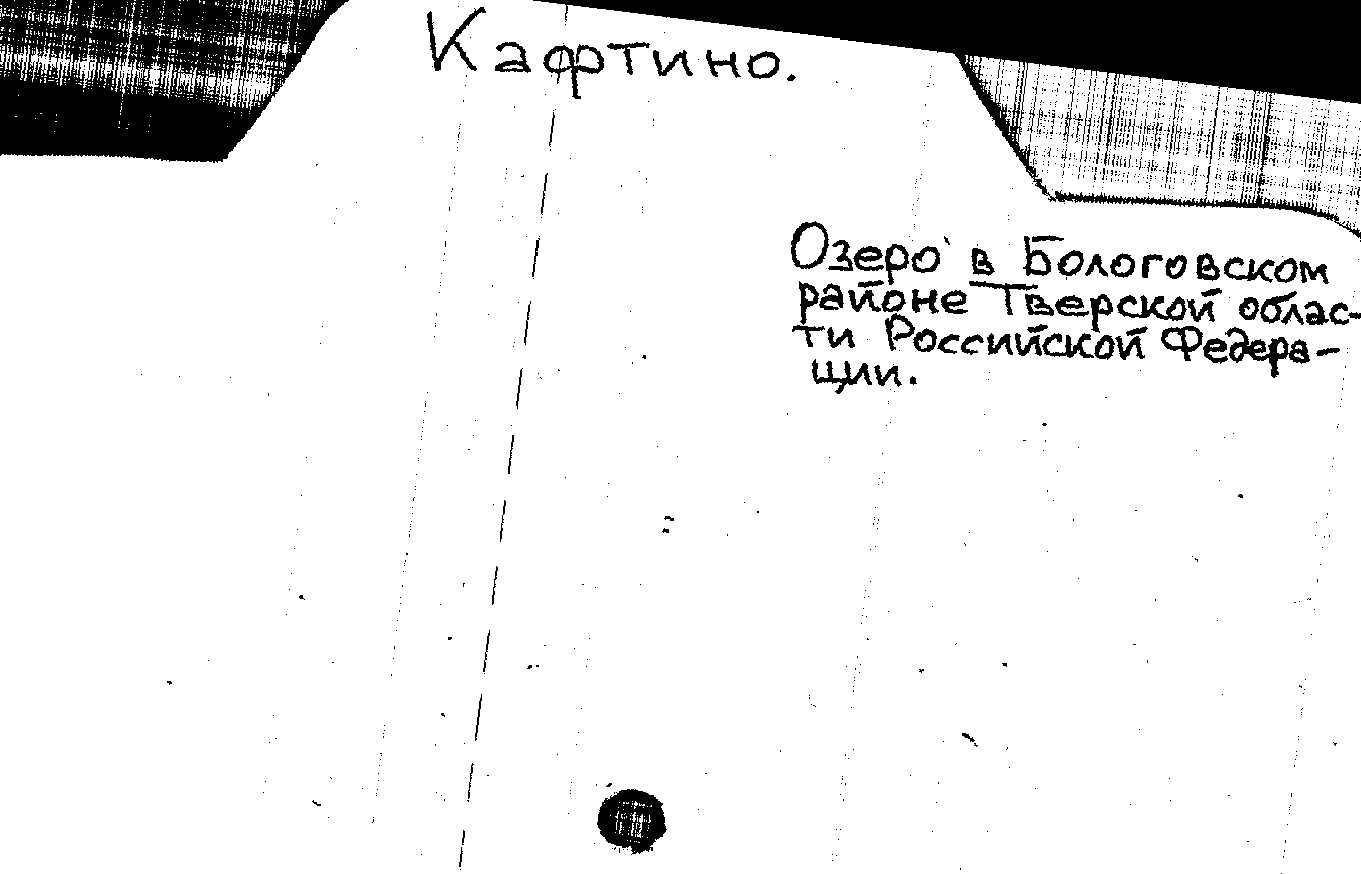 Кафтино.
Озеро в Бологовском
районе Тверской облас-
ти Российской Федера-
ции.